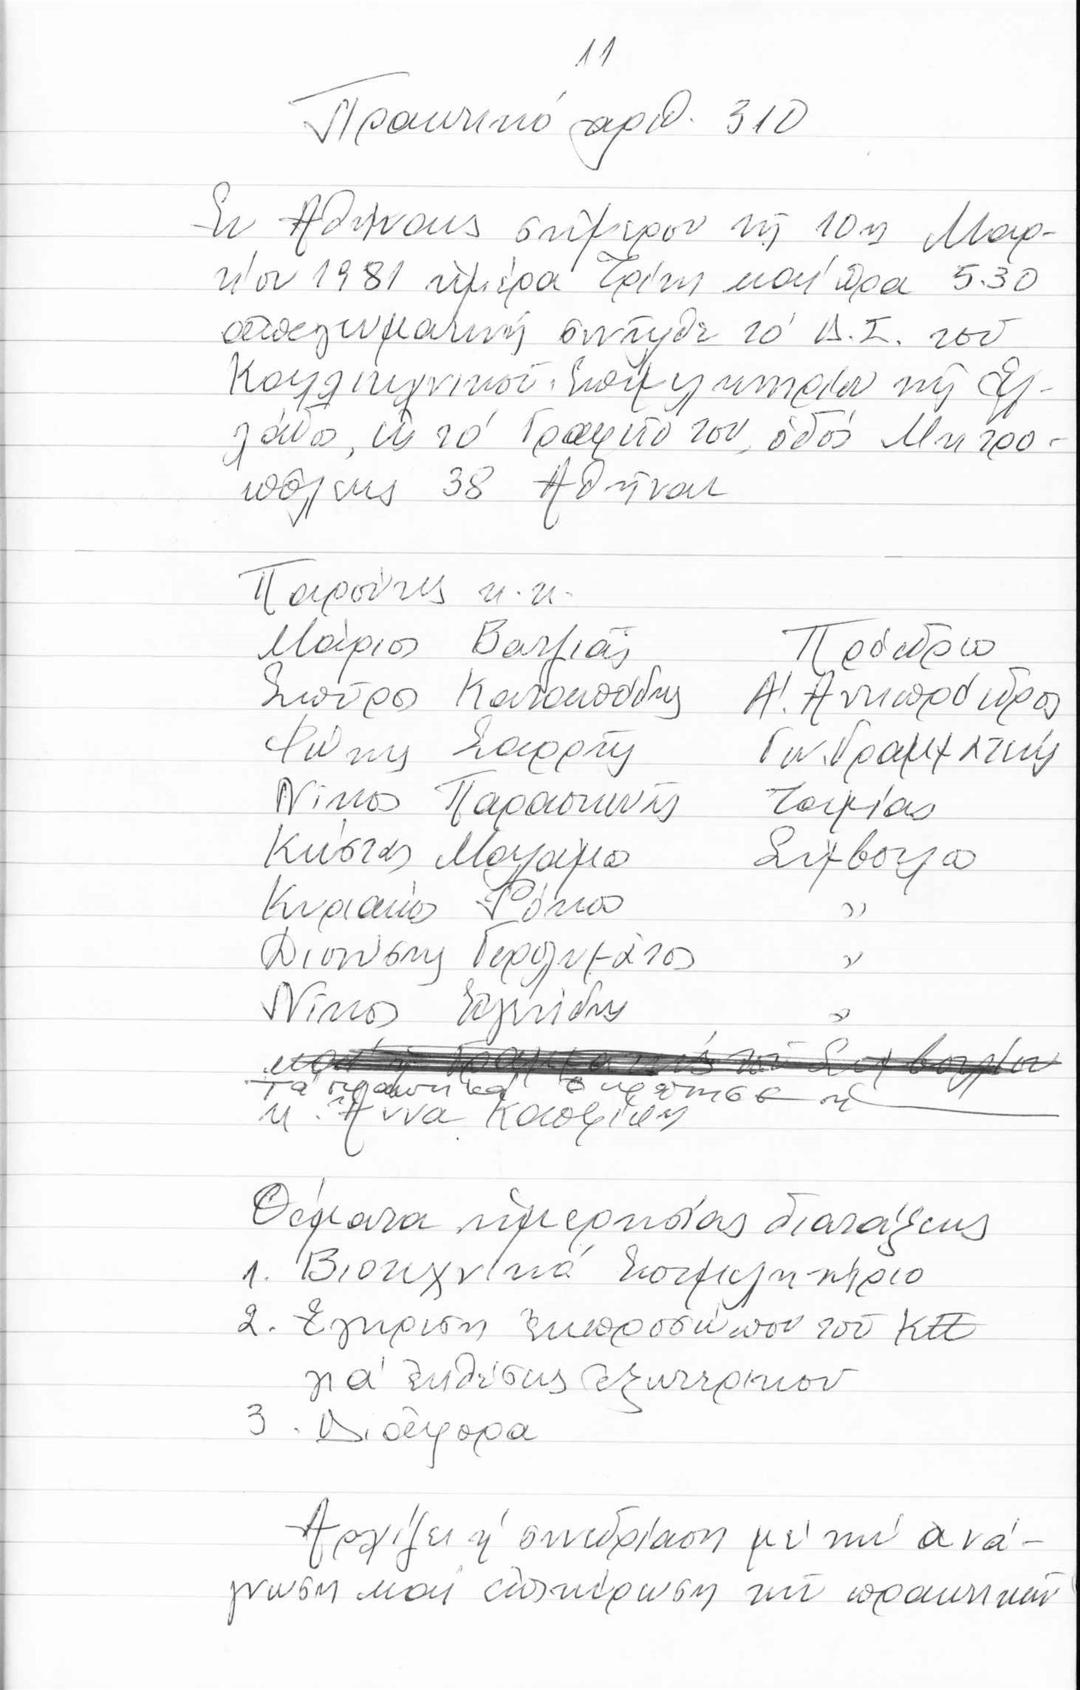 11
Πρακτικό αριθ. 310
Ἐν Ἀθήναις σήμερον τῇ 10η Μαρ-
τίου 1981 ἡμέρα Τρίτη καί ὥρα 5.30
ἀπογευματινή συνῆλθε τό Δ.Σ. τοῦ
Καλλιτεχνικοῦ Ἐπιμελητηρίου τῆς Ἑλ-
λάδος, εἰς τό Γραφεῖο του, ὁδός Μητρο-
πόλεως 38 Ἀθῆναι
Παρόντες κ.κ.
Μάριος Βατζιᾶς Πρόεδρος
Σπῦρος Κατραπάδης Α'. Ἀντιπρόεδρος
Φώτης Σαρρῆς Γεν. Γραμματεύς
Νίκος Παρασκευᾶς Ταμίας
Κώστας Μαλάμος Σύμβουλος
Κυριάκος Ρόκος "
Διονύσης Γερολυμάτος "
Νίκος "
καί ἡ Γραμματεύς τοῦ Συμβουλίου
Τά πρακτικά ἡ
κ. Ἄννα
Θέματα ἡμερησίας διατάξεως
1. Βιοτεχνικό Ἐπιμελητήριο
2. Ἔγκριση ἐκπροσώπου τοῦ ΚΕΕ
γιά ἐκθέσεις ἐξωτερικοῦ
3. Διάφορα
Ἀρχίζει ἡ συνεδρίαση μέ τήν ἀνά-
γνωση καί ἐπικύρωση τῶν πρακτικῶν